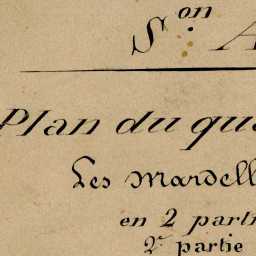 S.on A
Plan du qua
Les Mardell
en 2 parti
2e partie